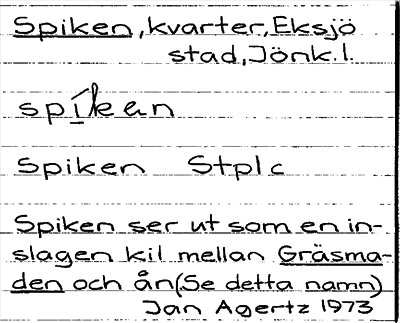 Spiken, kvarter, Eksjö
stad, Jönk.l.
spíken
Spiken Stplc
Spiken ser ut som en in-
slagen kil mellan Gräsma-
den och ån (Se detta namn)
Jan Agertz 1973